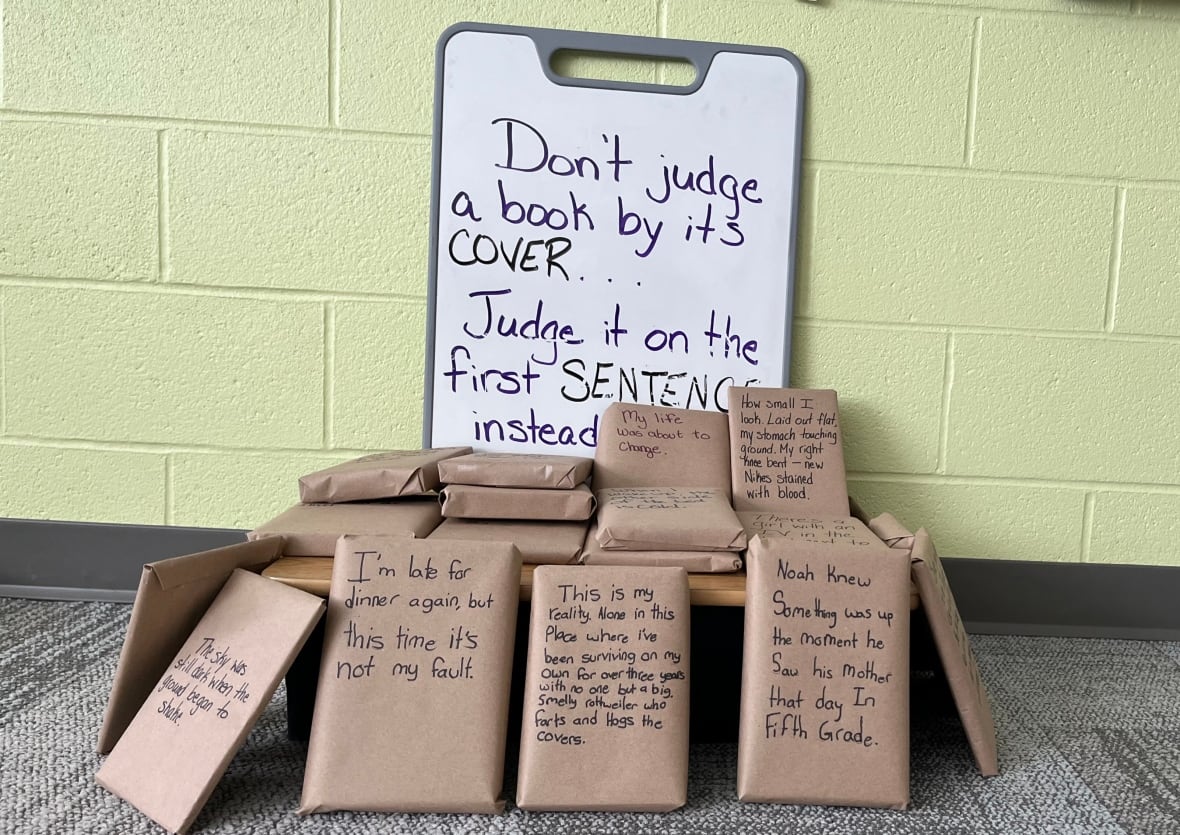 Don't judge
a book by it's
COVER. . .
Judge it on the
first SENTENC
instead
My life
was about to
change.
How small I
look. Laid out flat,
my stomach touching
ground. My right
knee bent — new
Nikes stained
with blood.
is cold.
There's a
girl with an
in the
to
The sky was
still dark when the
ground began to
shake.
I'm late for
dinner again, but
this time it's
not my fault.
This is my
reality. Alone in this
Place where i've
been surviving on my
own for over three years
with no one but a big,
Smelly rottweiler who
farts and Hogs the
covers.
Noah Knew
Something was up
the moment he
Saw his mother
that day In
Fifth Grade.